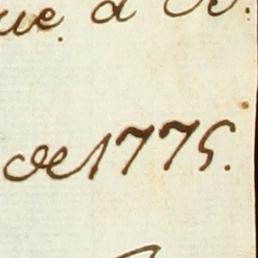 ue. a
de 1775.